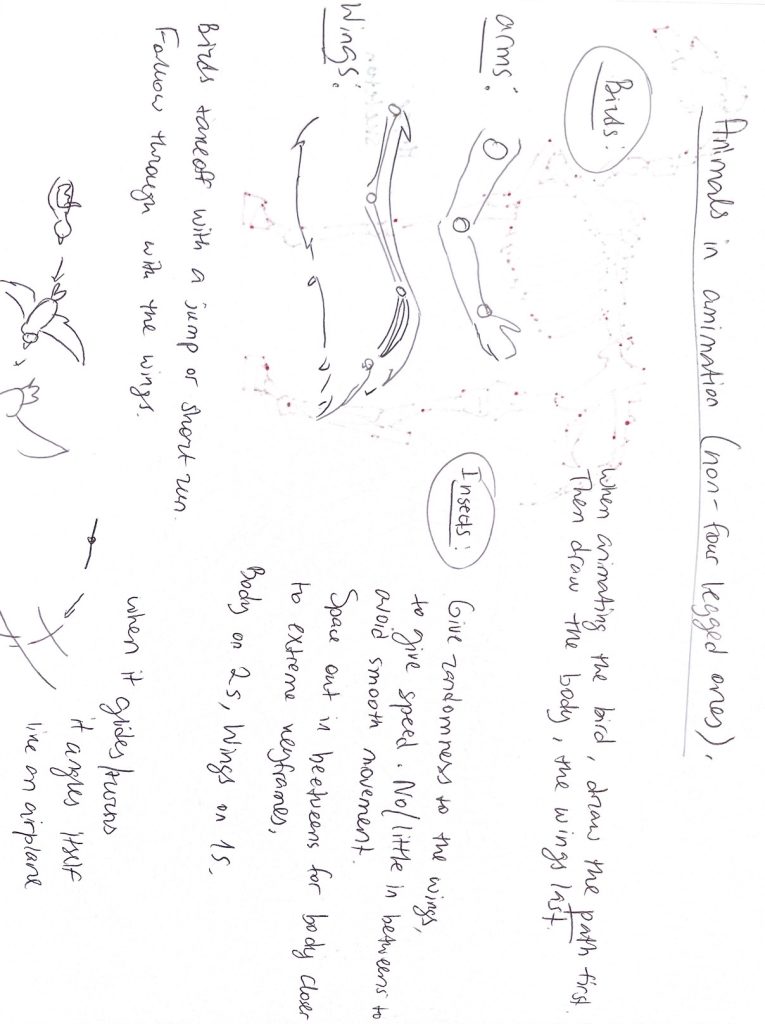 Animals in animation (non-four legged ones).
Birds:
When animating the bird, draw the path first.
Then draw the body, the wings last.
arms:
Wings:
Insects:
Give randomness to the wings,
to give speed. No/little in betweens to
avoid smooth movement.
Space out in beetweens for body closer
to extreme keyframes,
Body on 2s, Wings on 1s.
Birds takeoff with a jump or short run.
Follow through with the wings.
when it glides/turns
it angles itself
like an airplane